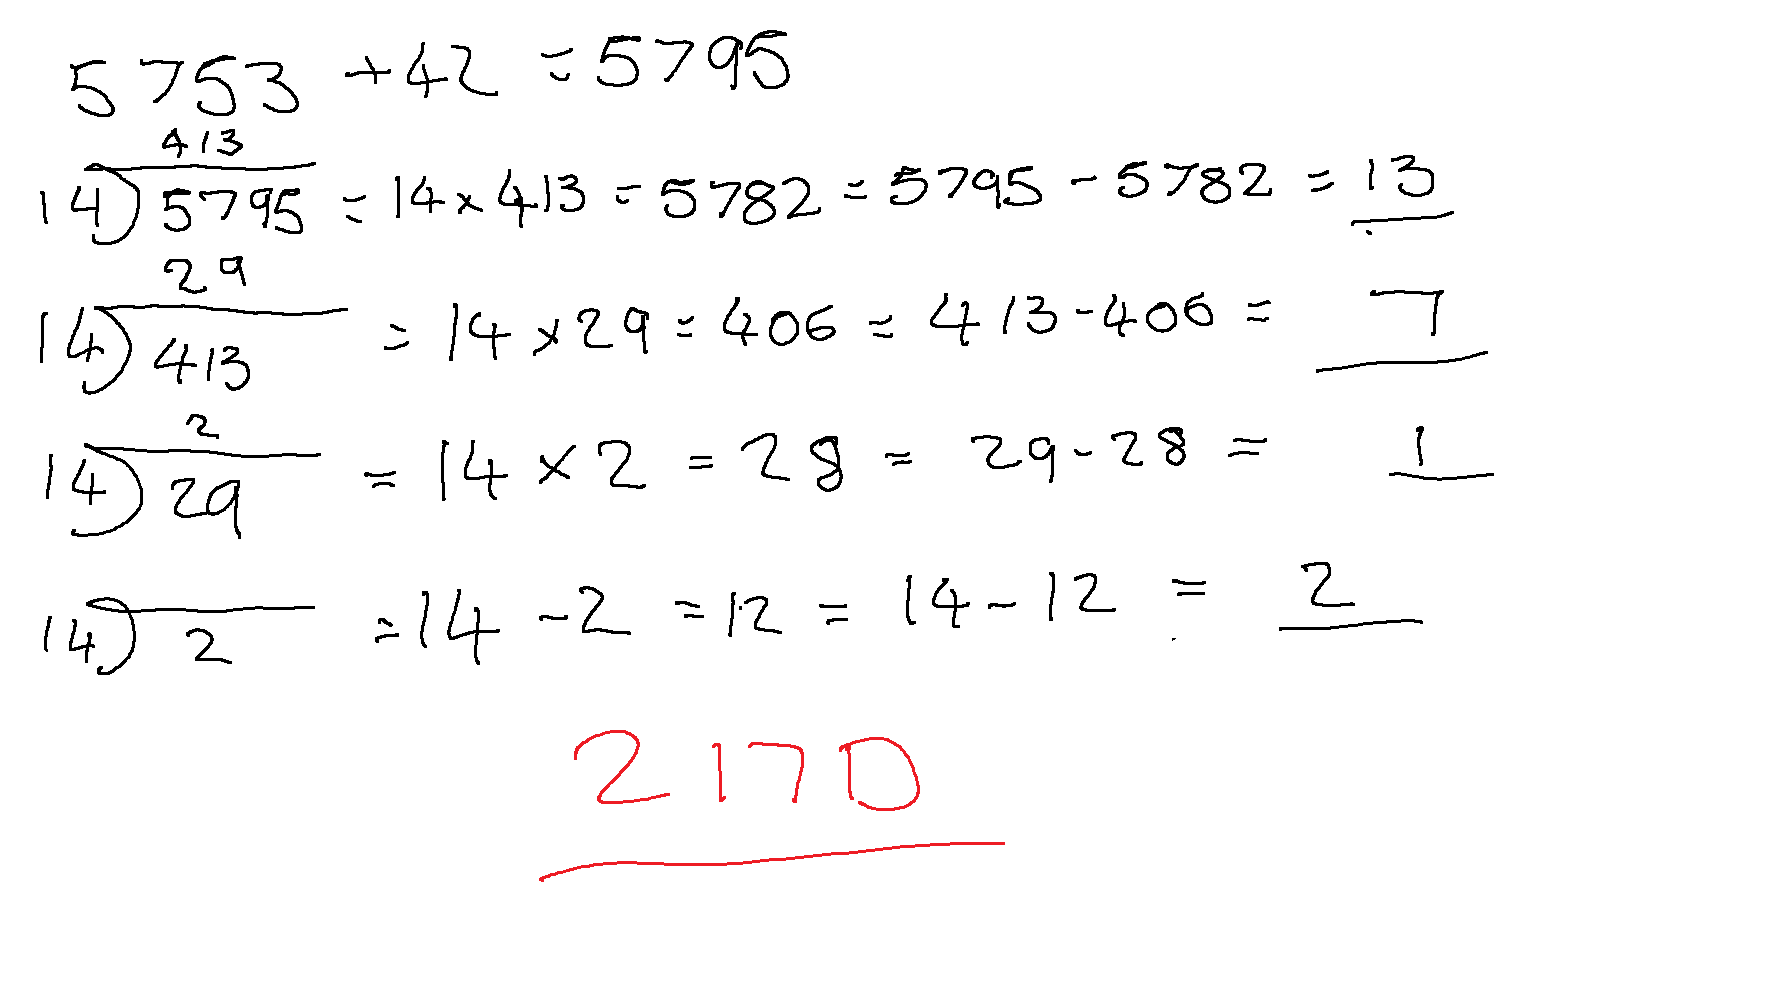 5753 + 42 = 5795
413
14) 5795 = 14 x 413 = 5782 = 5795 - 5782 = 13
29
14) 413 = 14 x 29 = 406 = 413 - 406 = 7
2
14) 29 = 14 x 2 = 28 = 29 - 28 = 1
14) 2 = 14 - 2 = 12 = 14 - 12 = 2
217D